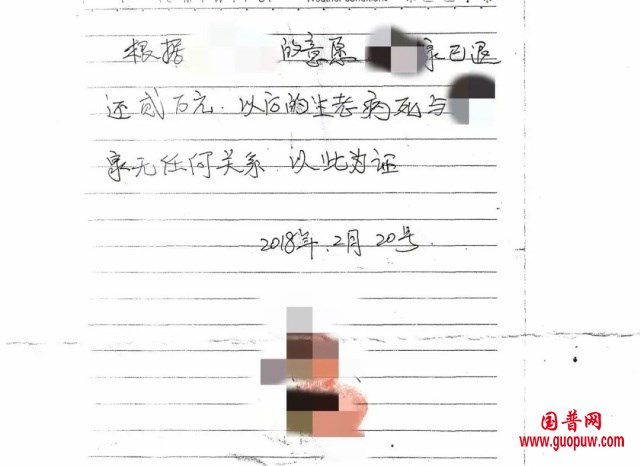 Weather conditions
根据 的意愿 家已退
还贰万元.以后的生老病死与
家无任何关系 以此为证
2018年.2月20号.
国普网
www.guopuw.com